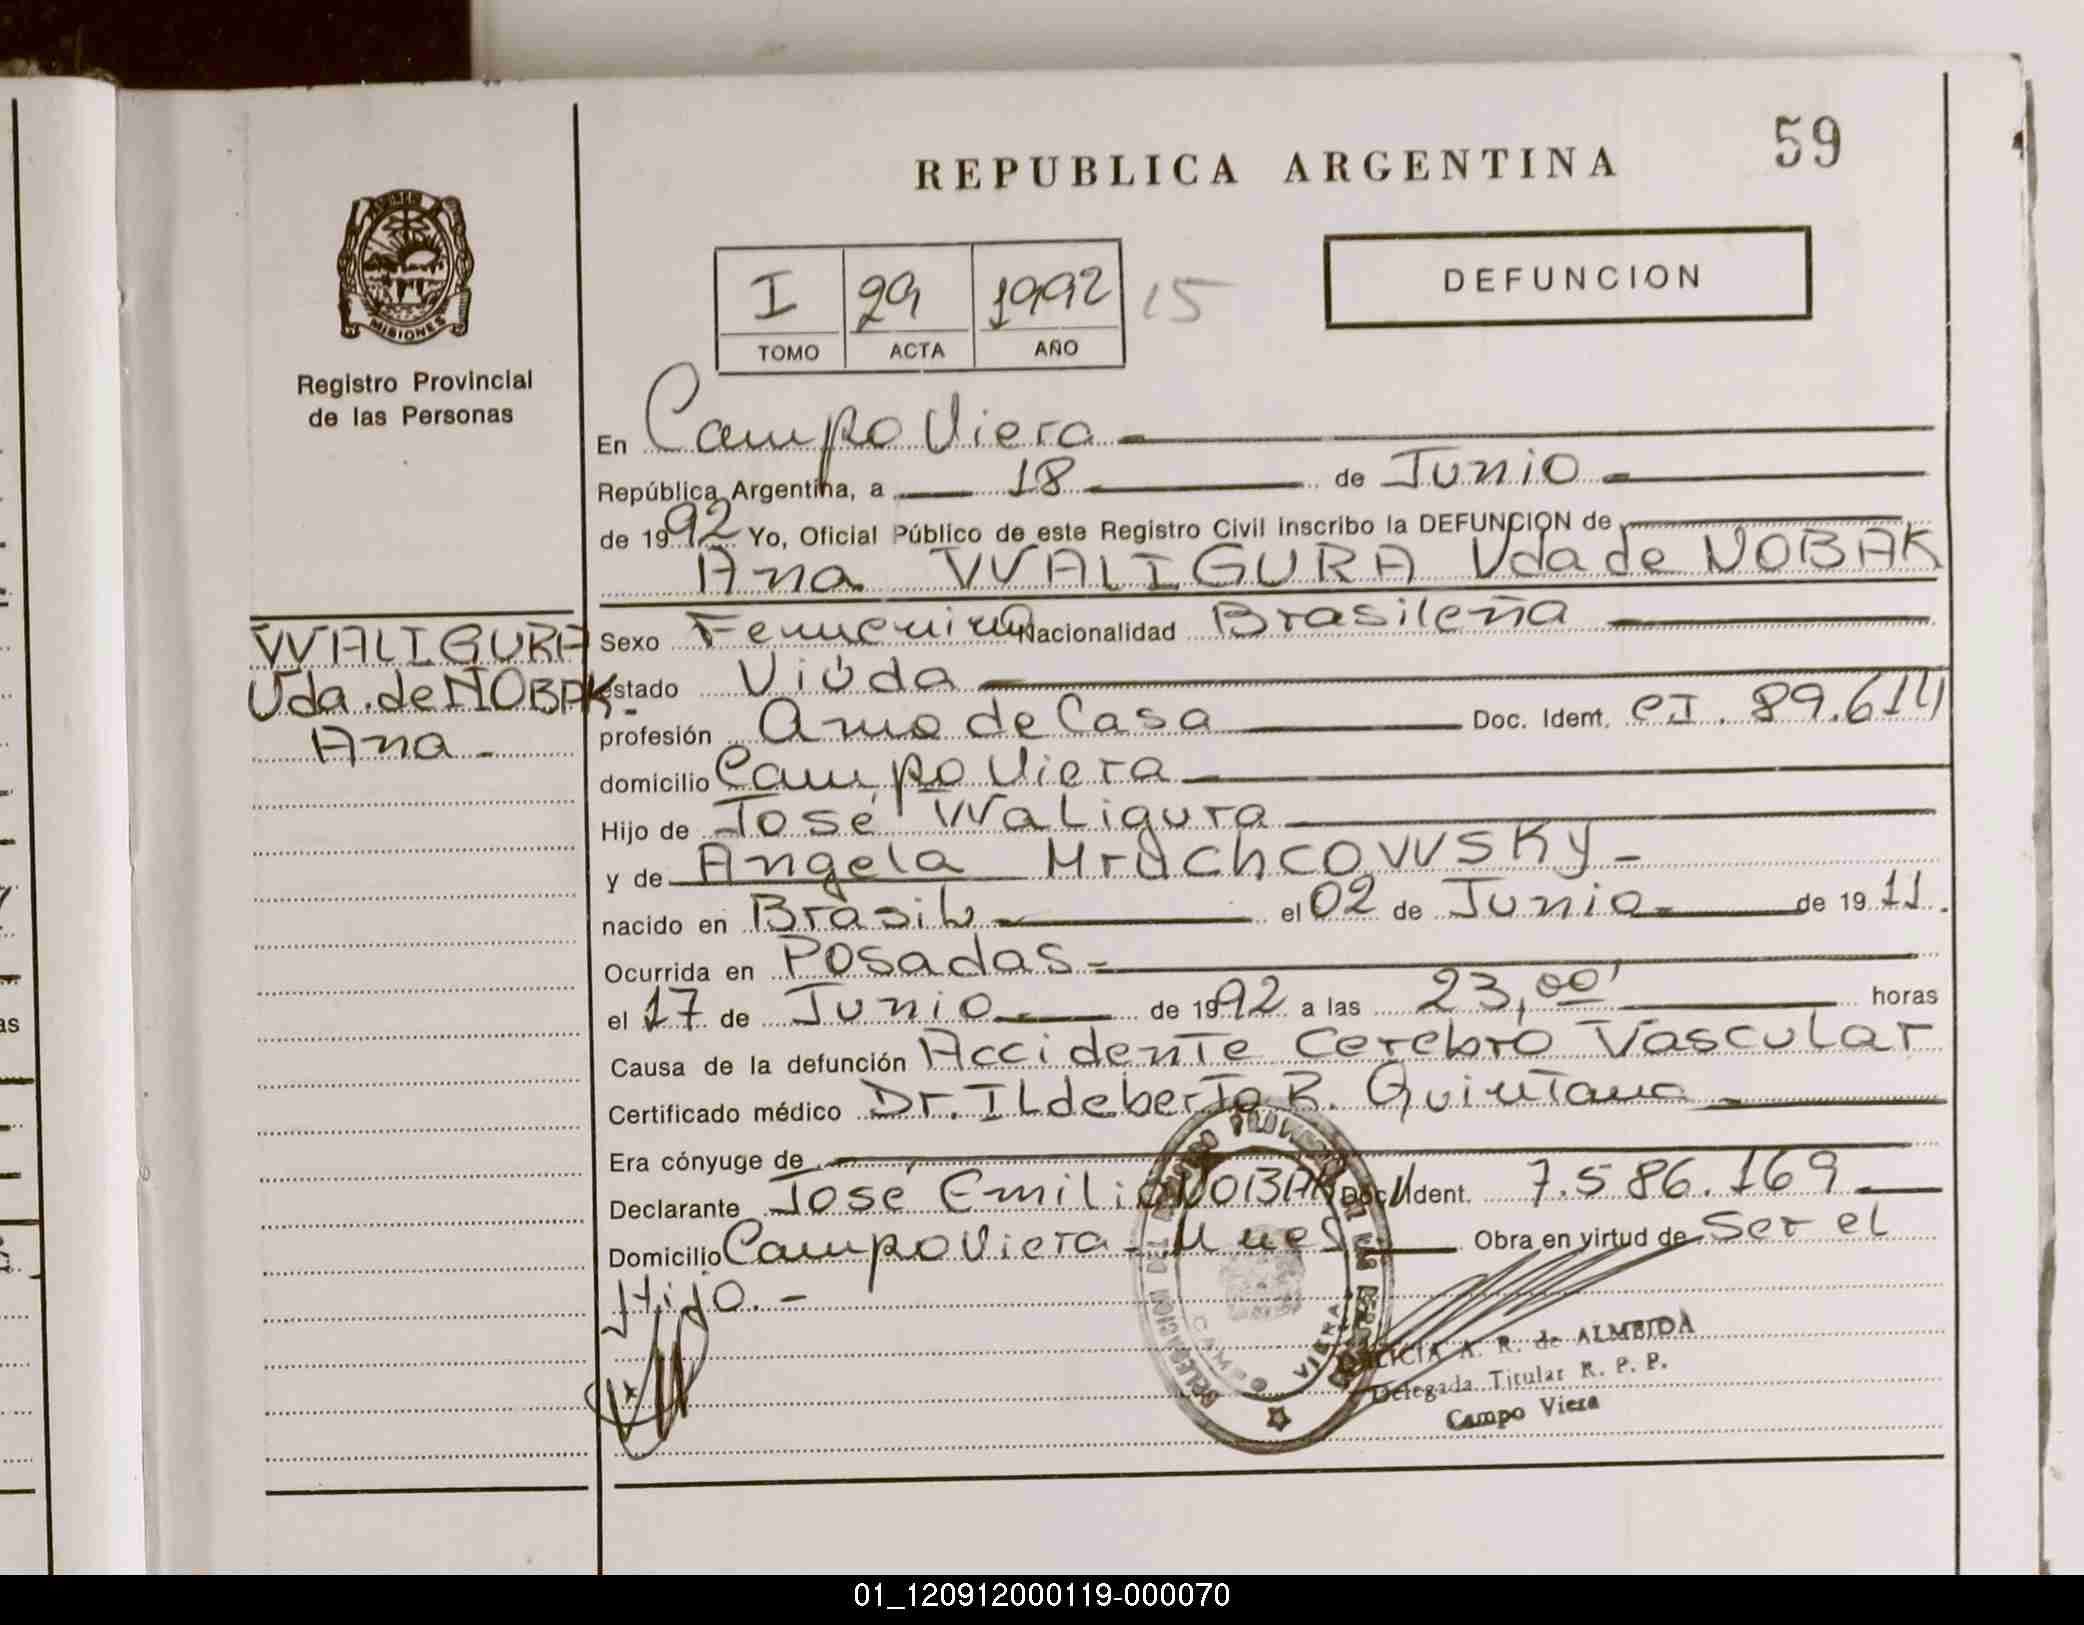 59
REPUBLICA ARGENTINA
MISIONES
Registro Provincial
de las Personas
DEFUNCION
I 29 1992 15
TOMO ACTA AÑO
En Campo Viera
República Argentina, a 18 de Junio
de 1992 Yo, Oficial Público de este Registro Civil inscribo la DEFUNCION de
Ana WALIGURA Vda de NOBAK
WALIGURA
Vda. de NOBAK.-
Ana -
Sexo Femenino Nacionalidad Brasileña
estado Viúda
profesión Ama de Casa Doc. Ident. CI. 89.614
domicilio Campo Viera
Hijo de José Waligura
y de Angela Mrachcowsky -
nacido en Brasil el 02 de Junio de 1911.
Ocurrida en Posadas-
el 17 de Junio de 1992 a las 23,00' horas
Causa de la defunción Accidente Cerebro Vascular
Certificado médico Dr. Ildeberto R. Quintana
Era cónyuge de
Declarante José Emilio NOBAK Doc. Ident. 7.586.169
Domicilio Campo Viera - Mnes Obra en virtud de Ser el
Hijo. -
DELEGACION DEL REGISTRO PROVINCIAL DE LAS PERSONAS
CAMPO VIERA
A. R. de ALMEIDA
Delegada Titular R. P. P.
Campo Viera
01_120912000119-000070